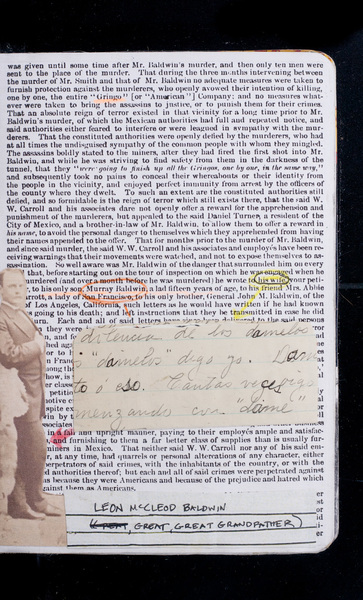 was given until some time after Mr. Baldwin's murder, and then only ten men were
sent to the place of the murder. That during the three months intervening between
the murder of Mr. Smith and that of Mr. Baldwin no adequate measures were taken to
furnish protection against the murderers, who openly avowed their intention of killing,
one by one, the entire "Gringo" [or "American"] Company; and no measures what-
ever were taken to bring the assassins to justice, or to punish them for their crimes.
That an absolute reign of terror existed in that vicinity for a long time prior to Mr.
Baldwin's murder, of which the Mexican authorities had full and repeated notice, and
said authorities either feared to interfere or were leagued in sympathy with the mur-
derers. That the constituted authorities were openly defied by the murderers, who had
at all times the undisguised sympathy of the common people with whom they mingled.
The assassins boldly stated to the miners, after they had fired the first shot into Mr.
Baldwin, and while he was striving to find safety from them in the darkness of the
tunnel, that they "were going to finish up all the Gringos, one by one, in the same way,"
and subsequently took no pains to conceal their whereabouts or their identity from
the people in the vicinity, and enjoyed perfect immunity from arrest by the officers of
the county where they dwelt. To such an extent are the constituted authorities still
defied, and so formidable is the reign of terror which still exists there, that the said W.
W. Carroll and his associates dare not openly offer a reward for the apprehension and
punishment of the murderers, but appealed to the said Daniel Turner, a resident of the
City of Mexico, and a brother-in-law of Mr. Baldwin, to allow them to offer a reward in
his name, to avoid the personal danger to themselves which they apprehended from having
their names appended to the offer. That for months prior to the murder of Mr. Baldwin,
and since said murder, the said W. W. Carroll and his associates and employés have been re-
ceiving warnings that their movements were watched, and not to expose themselves to as-
sassination. So well aware was Mr. Baldwin of the danger that surrounded him on every
that, before starting out on the tour of inspection on which he was engaged when he
murdered (and over a month before he was murdered) he wrote to his wife, your peti-
to his only son, Murray Baldwin, a lad fifteen years of age, to his friend Mrs. Abbie
rrott, a lady of San Francisco, to his only brother, General John M. Baldwin, of the
of Los Angeles, California, such letters as he would have written if he had known
going to his death; and left instructions that they be transmitted in case he did
urn. Each and all of said letters have
they were
digo yo.
"dame"
in a fair and upright manner, paying to their employés ample and satisfac-
furnishing to them a far better class of supplies than is usually fur-
miners in Mexico. That neither said W. W. Carroll nor any of his said em-
r, at any time, had quarrels or personal altercations of any character, either
perpetrators of said crimes, with the inhabitants of the country, or with the
d authorities thereof; but each and all of said crimes were perpetrated against
s because they were Americans and because of the prejudice and hatred which
gainst them as Americans.
LEON McCLEOD BALDWIN
GREAT, GREAT GRANDFATHER)